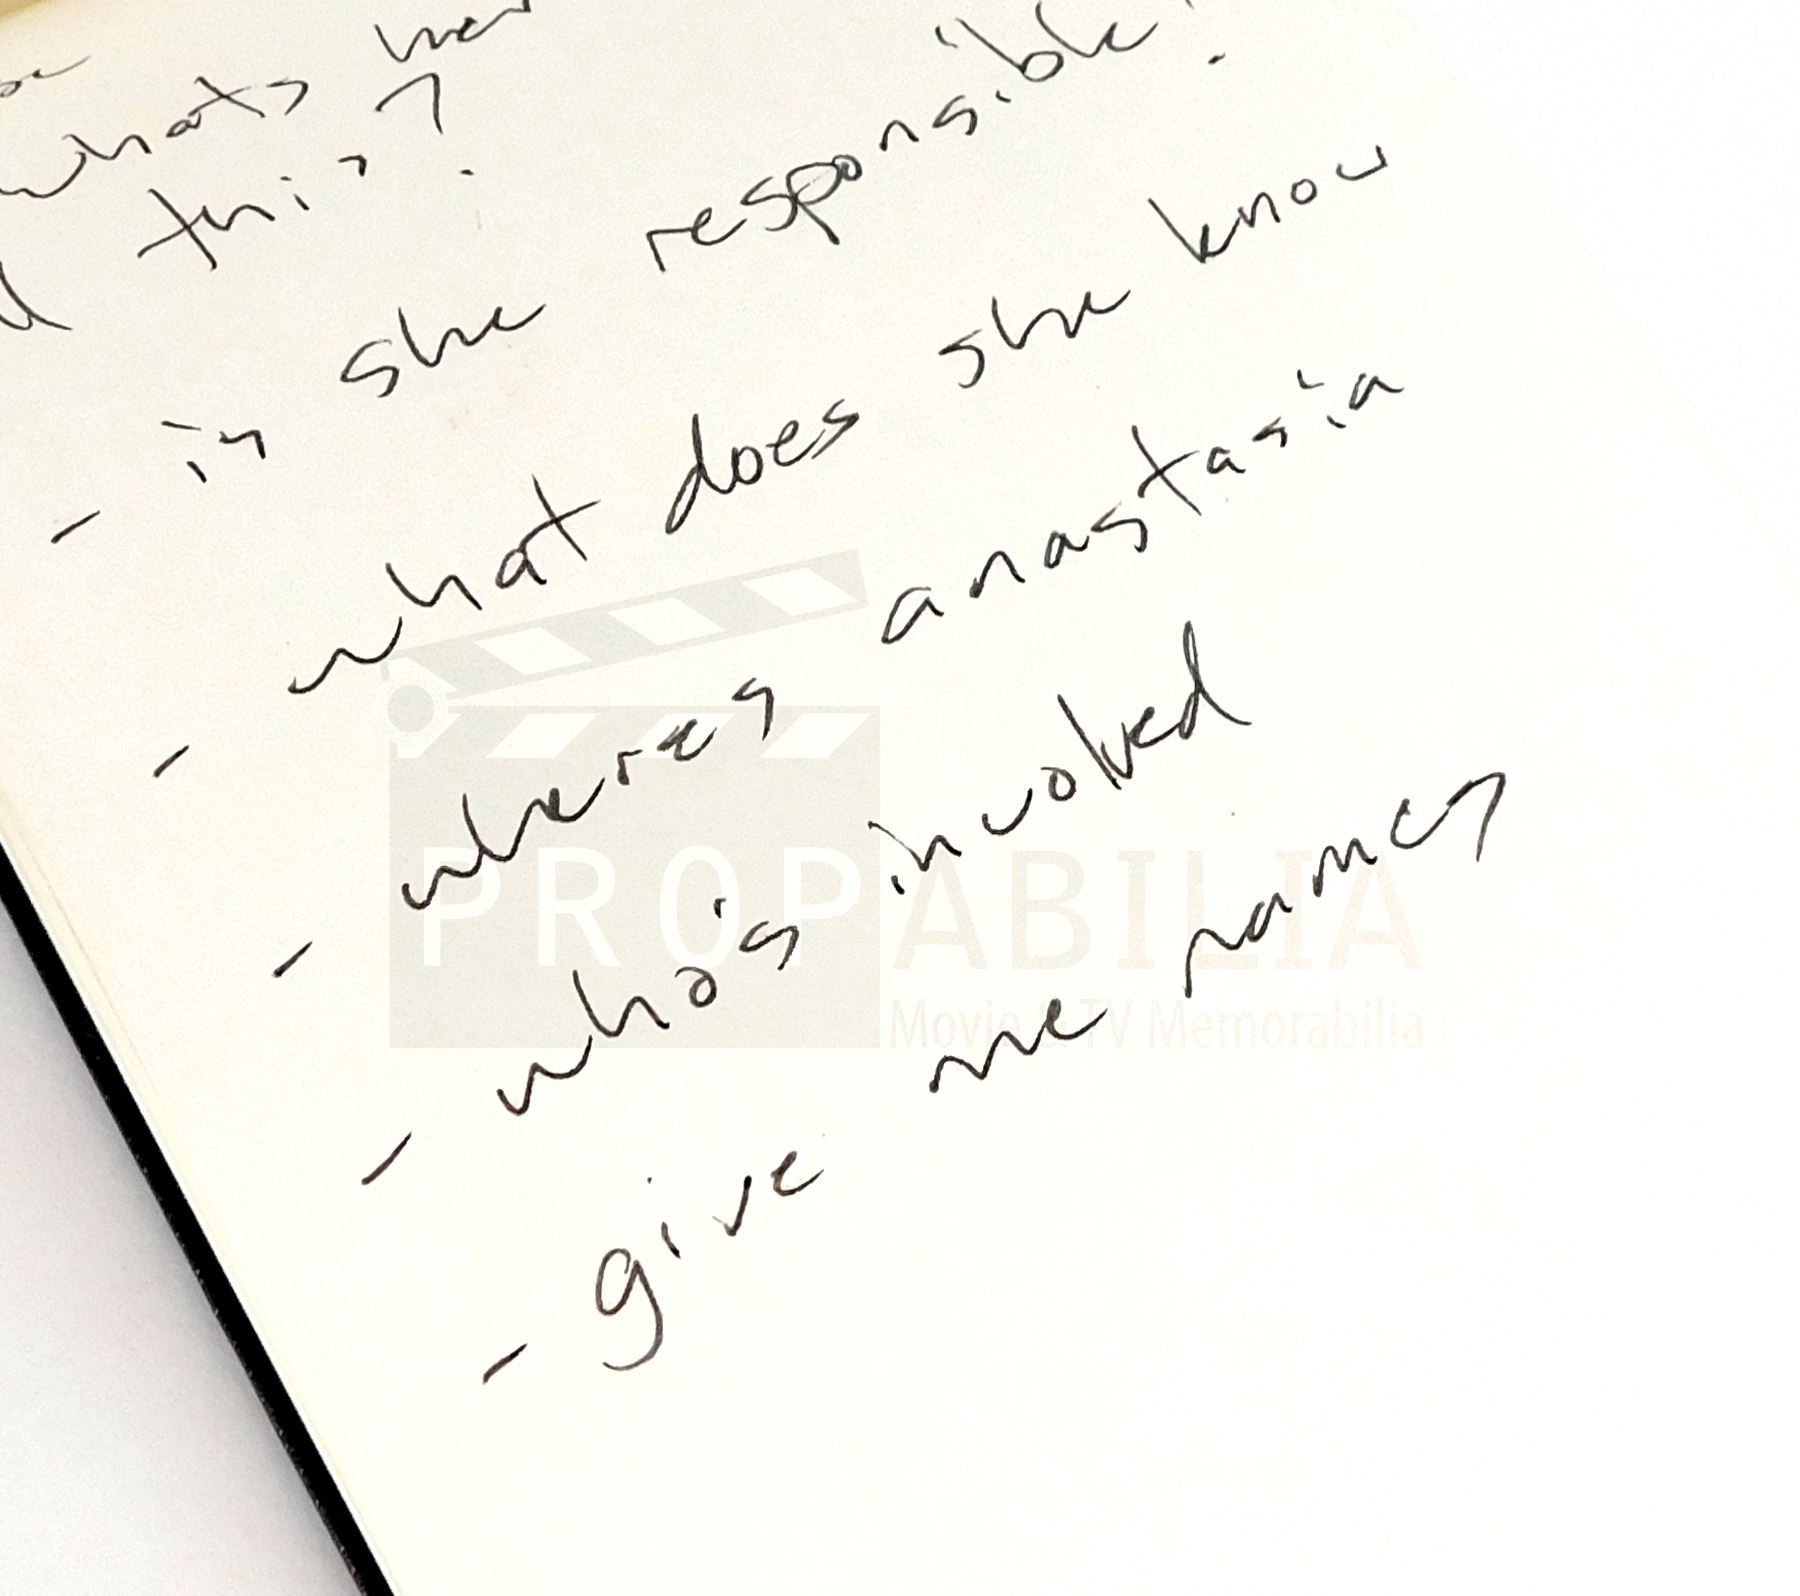 whats her
this?
- is she responsible?
- what does she know
- wheres anastasia
- who's involved
- give me names
PROPABILIA
Movie & TV Memorabilia